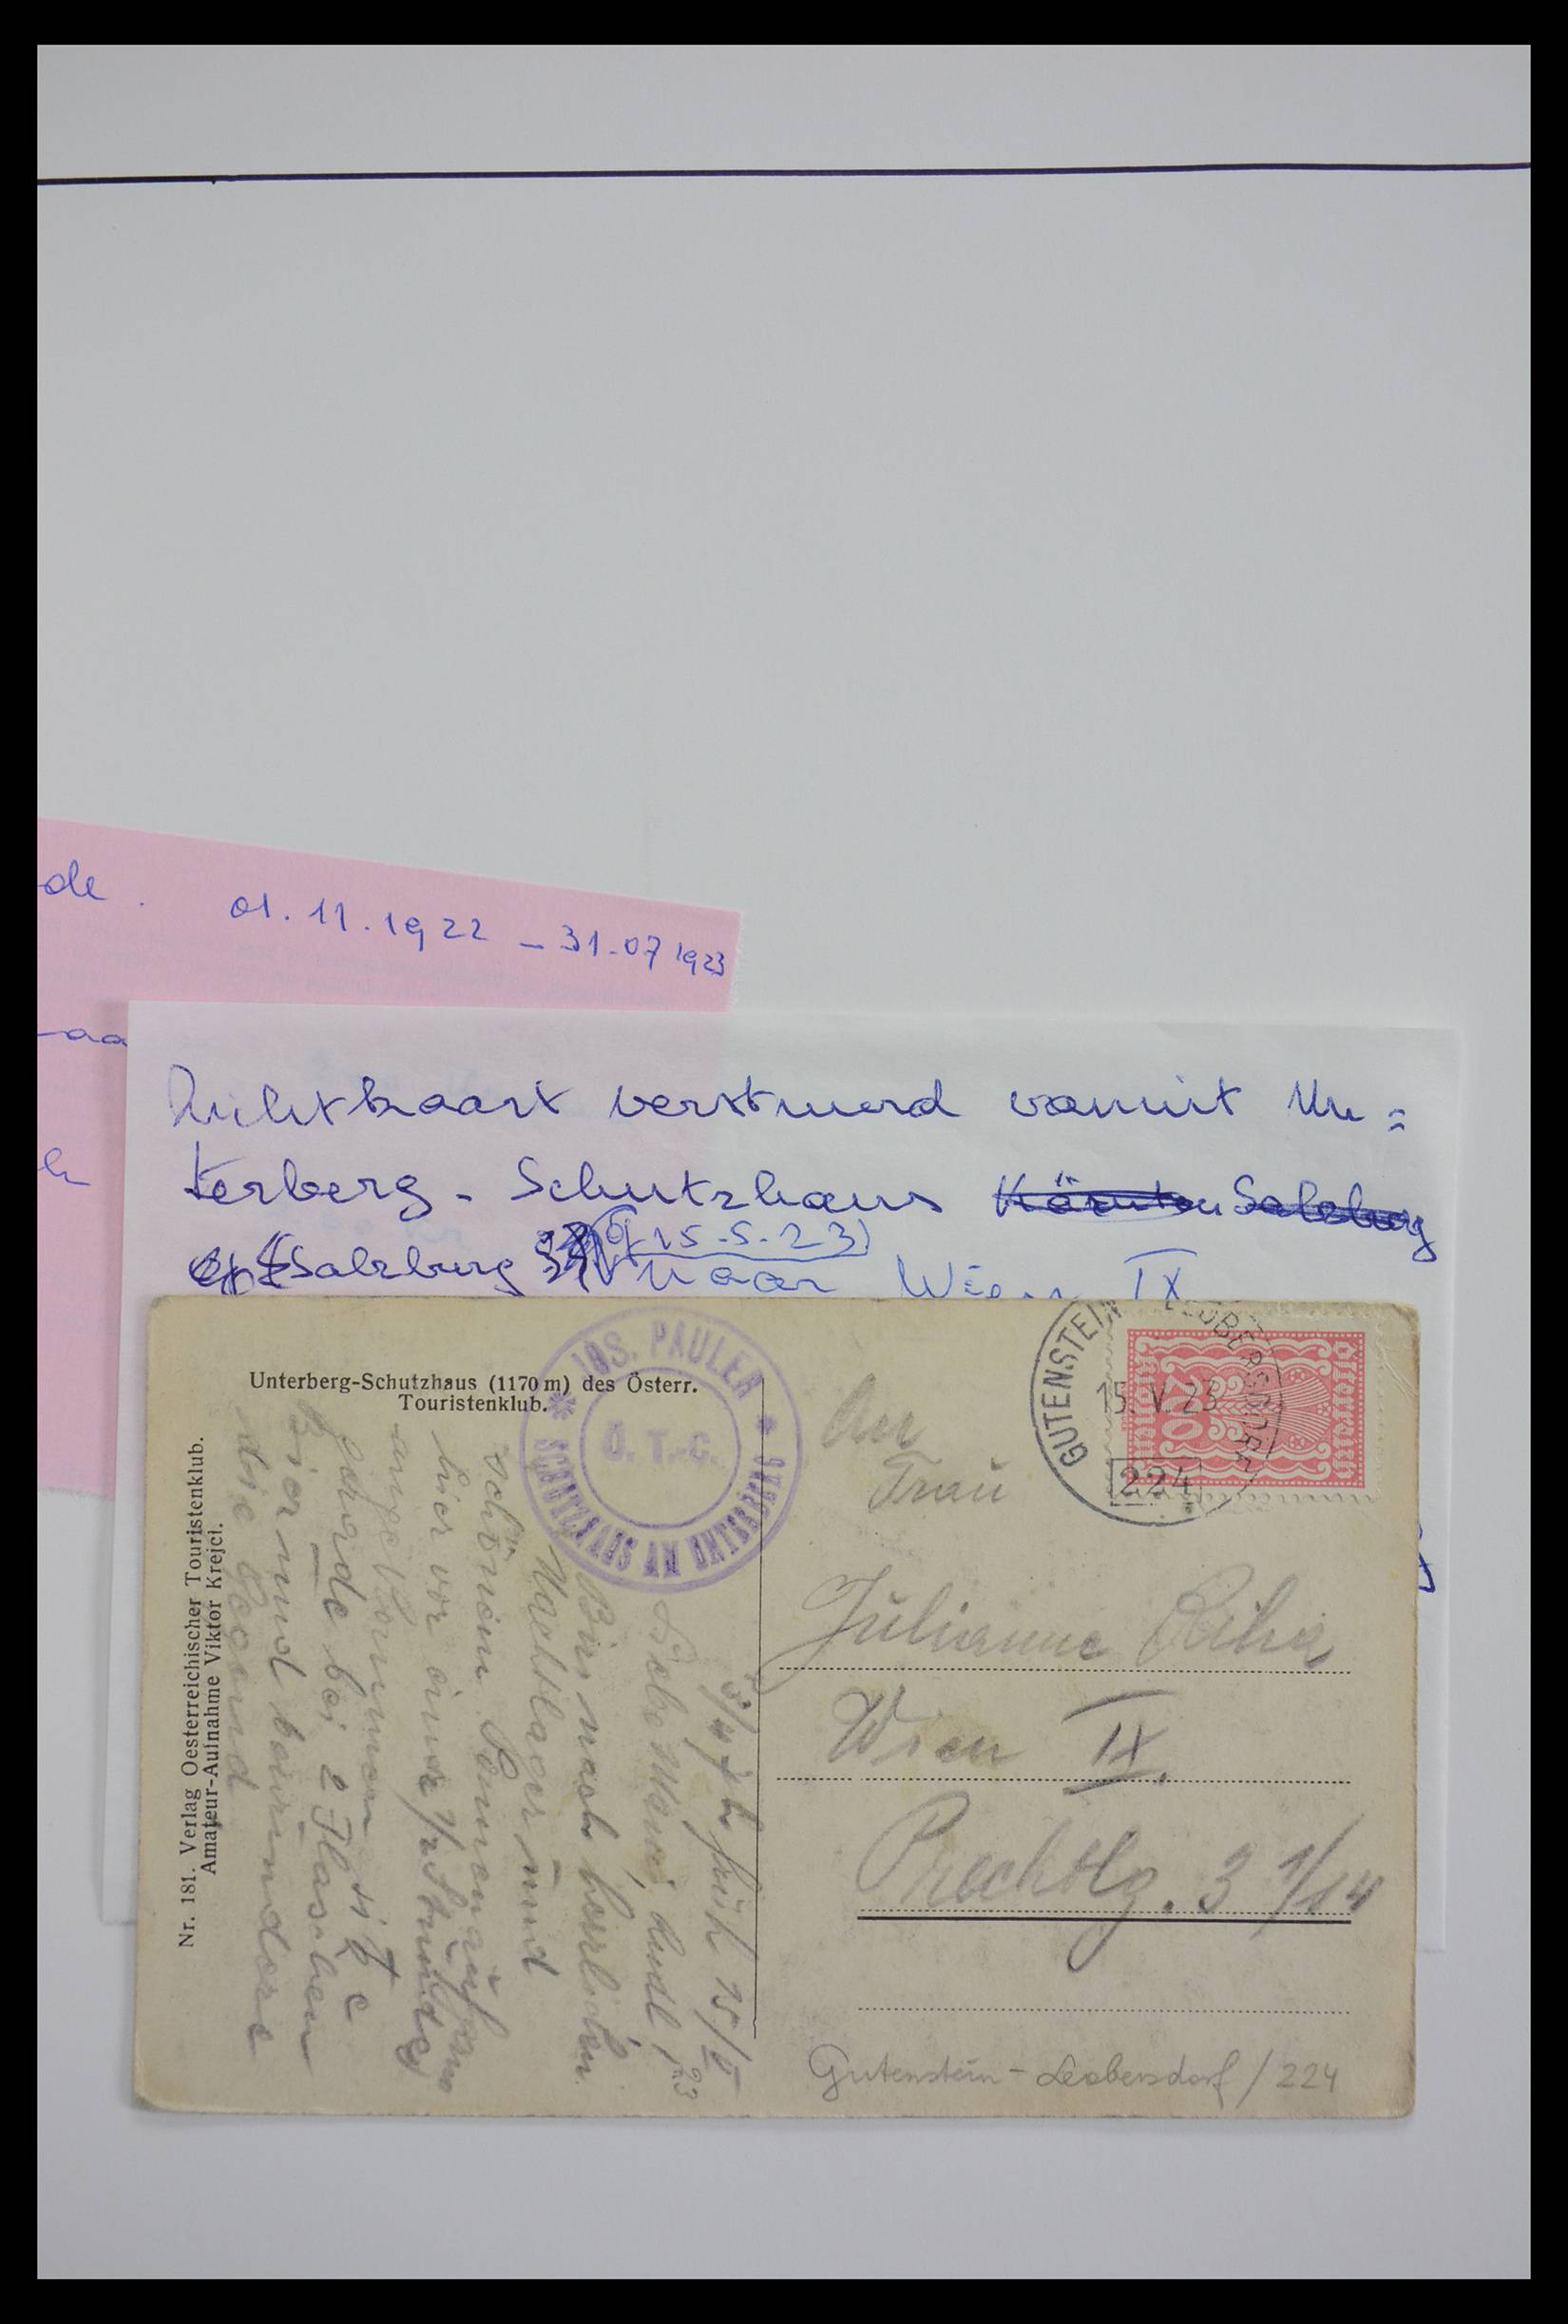 de. 01.11.1922 – 31.07 1923
aa
Zichtkaart verstuurd vanuit Un=
terberg - Schutzhaus
Salzburg (15.5.23)
naar Wien IX
Unterberg-Schutzhaus (1170 m) des Österr.
Touristenklub.
JOS. PAULER
Ö. T.-C.
SCHUTZHAUS AM UNTERBERG
Nr. 181. Verlag Oesterreichischer Touristenklub.
Amateur-Aufnahme Viktor Krejci.
früh 15/V 23
Liebe Mami
Bin nach herrlichem
Nachtlager und
schönem Sonnenaufgang
hier vor einer 1/2 Stunde
angekommen sitze
gerade bei 2 Flaschen
Bier und bewundere
die Gegend
GUTENSTEIN LEOBERSDORF
15. V. 23
224
200
Österreich
An
Frau
Julianne Riha
Wien IX.
Prechtlg. 3 1/14
Gutenstein - Leobersdorf / 224